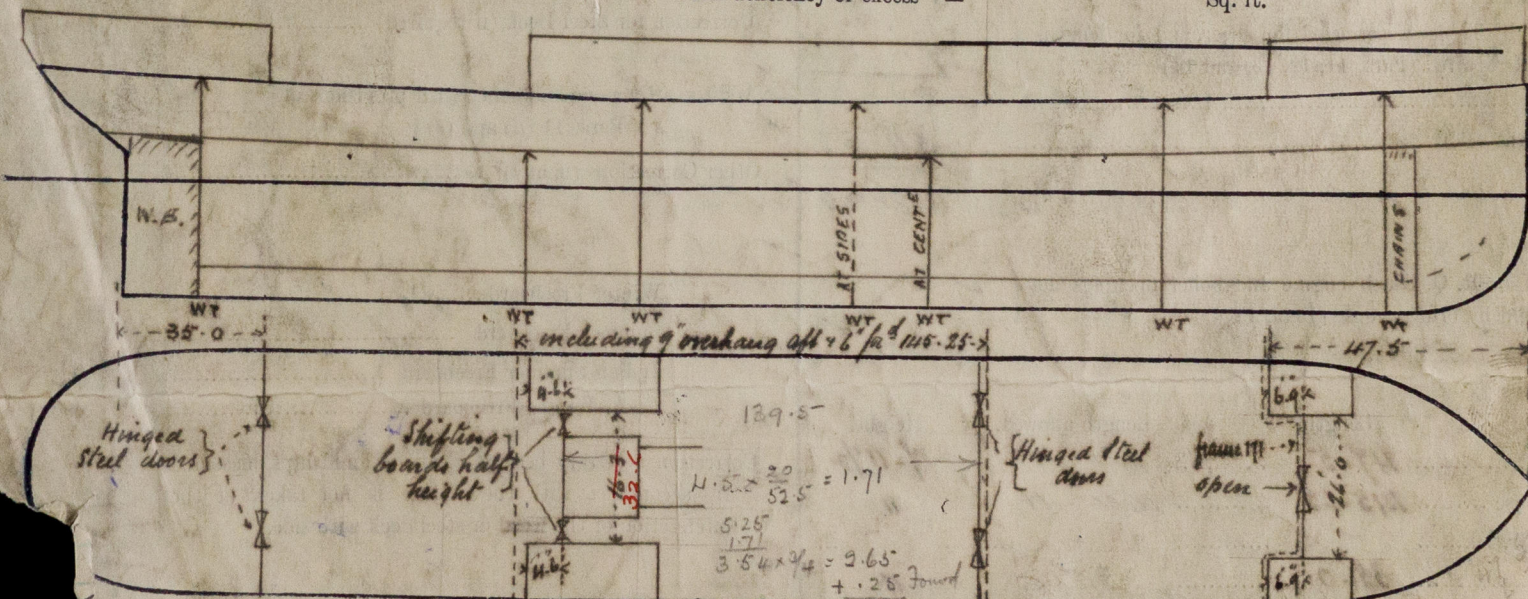 Sq. ft.
W.B.
AT SIDES
AT CENTE
CHAINS
WT
WT
WT
WT
WT
WT
WT
35.0
including 9" overhang aft & 6" for'd 145.25
47.5
Hinged
Steel doors
Shifting
boards half
height
4.6
4.6
32.6
139.5
4.5 x 20/52.5 = 1.71
5.25
1.71
3.54 x 3/4 = 2.65
+ .25 Found
Hinged Steel
doors
frame 171
open
6.9
6.9
26.0